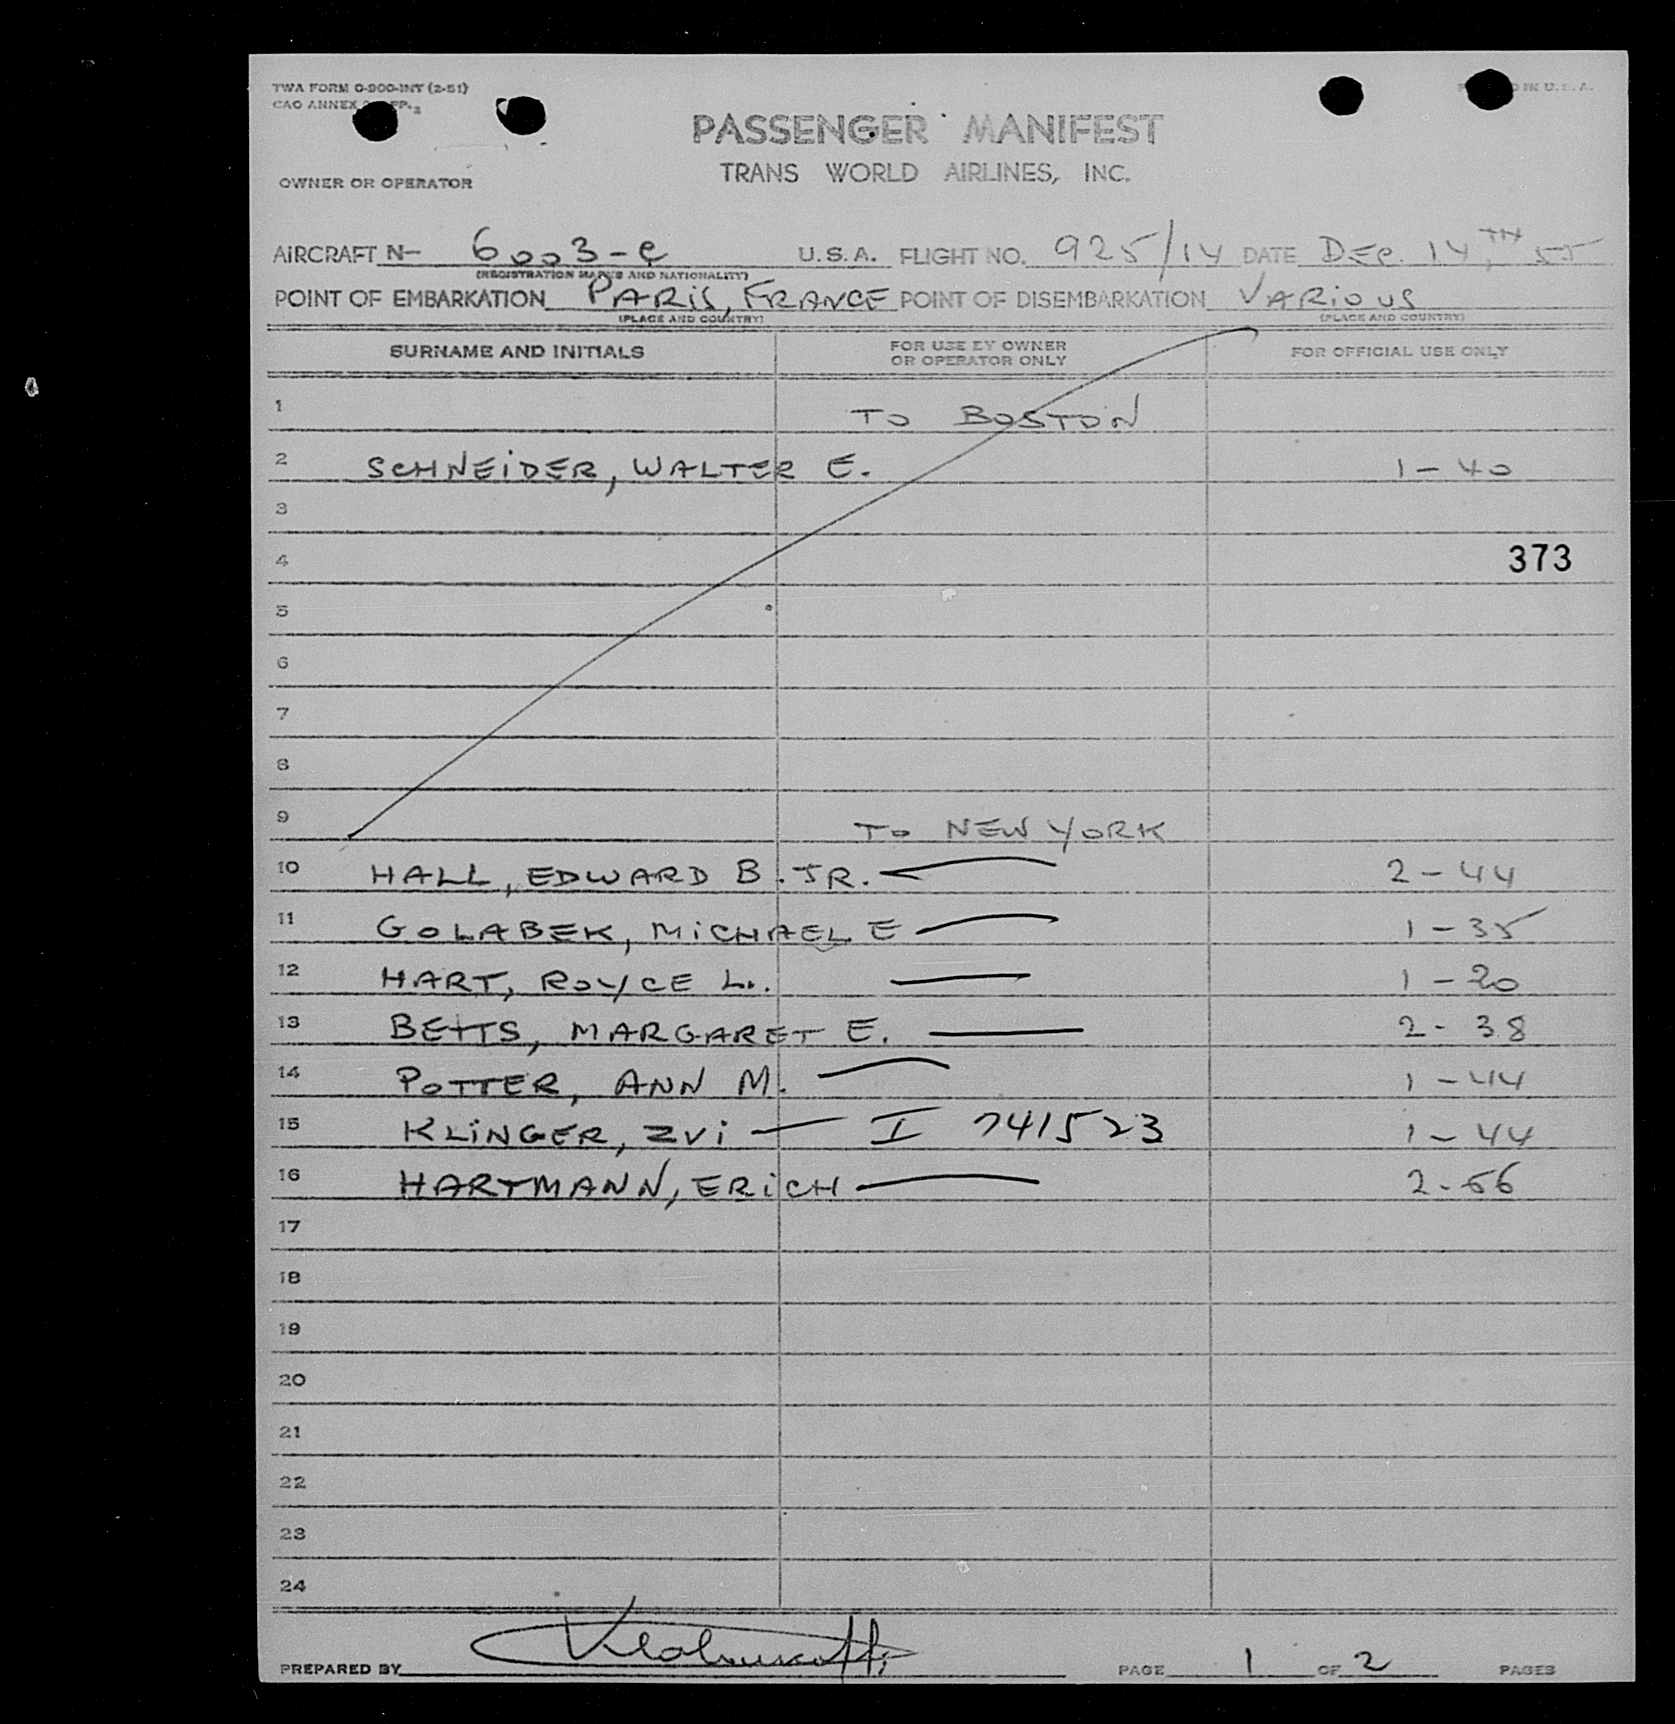 TWA FORM O-900-INT (2-51)
CAO ANNEX
IN U.S.A.
PASSENGER MANIFEST
TRANS WORLD AIRLINES, INC.
OWNER OR OPERATOR
AIRCRAFT N- 6003-C U.S.A. FLIGHT NO. 925/14 DATE DEC. 14TH, 55
(REGISTRATION MARKS AND NATIONALITY)
POINT OF EMBARKATION PARIS, FRANCE POINT OF DISEMBARKATION VARIOUS
(PLACE AND COUNTRY) (PLACE AND COUNTRY)
SURNAME AND INITIALS FOR USE BY OWNER OR OPERATOR ONLY FOR OFFICIAL USE ONLY
1 TO BOSTON
2 SCHNEIDER, WALTER E. 1-40
3
4 373
5
6
7
8
9 TO NEW YORK
10 HALL, EDWARD B. JR. 2-44
11 GOLABEK, MICHAEL E 1-35
12 HART, ROYCE L. 1-20
13 BETTS, MARGARET E. 2-38
14 POTTER, ANN M. 1-44
15 KLINGER, ZVI — I 741523 1-44
16 HARTMANN, ERICH 2-56
17
18
19
20
21
22
23
24
PREPARED BY PAGE 1 OF 2 PAGES